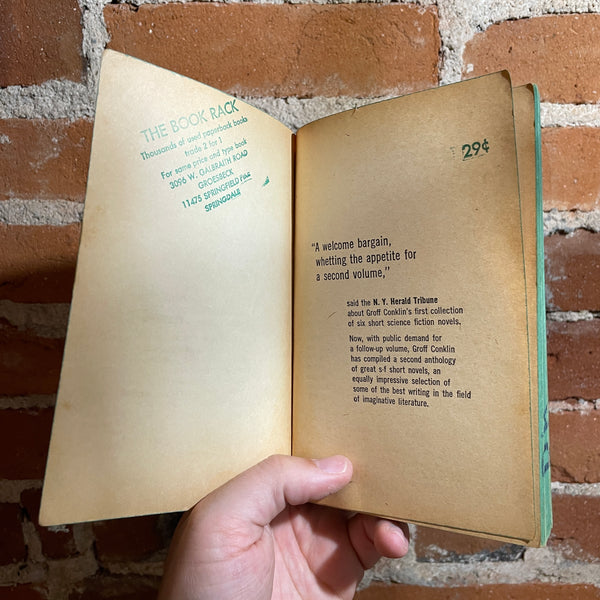 THE BOOK RACK
Thousands of used paperback books
trade 2 for 1
For same price and type book
3096 W. GALBRAITH ROAD
GROESBECK
11475 SPRINGFIELD PIKE
SPRINGDALE
29¢
"A welcome bargain,
whetting the appetite for
a second volume,"
said the N. Y. Herald Tribune
about Groff Conklin's first collection
of six short science fiction novels.
Now, with public demand for
a follow-up volume, Groff Conklin
has compiled a second anthology
of great s-f short novels, an
equally impressive selection of
some of the best writing in the field
of imaginative literature.